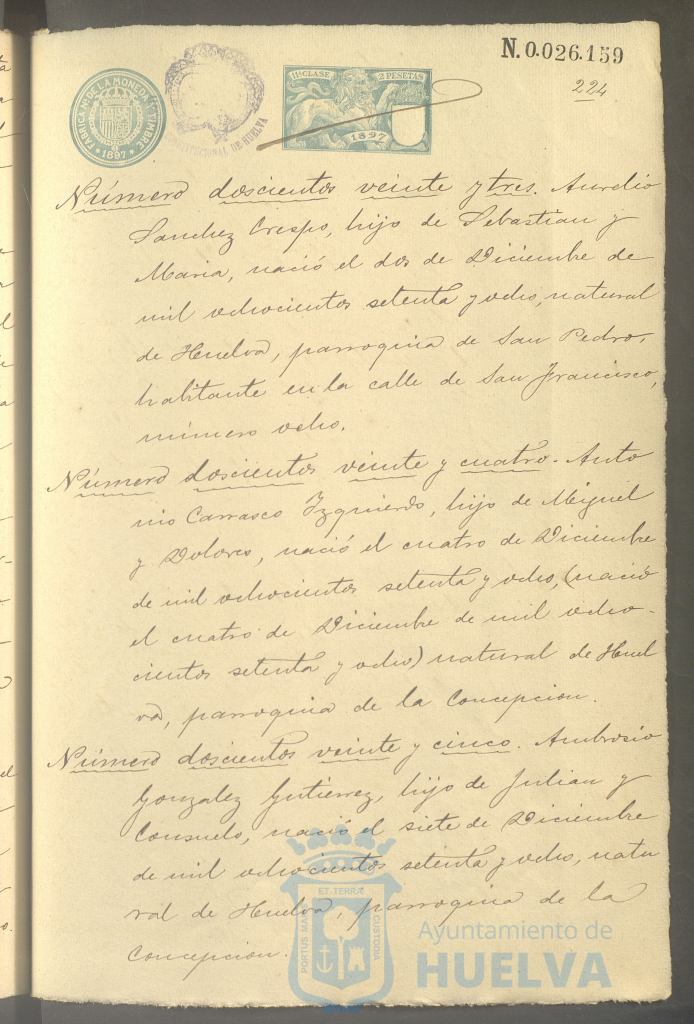 N.0.026.159
224
FABRICA NAL DE LA MONEDA Y TIMBRE
1897
CONSTITUCIONAL DE HUELVA
11ª CLASE 2 PESETAS
1897
Número doscientos veinte y tres. Aurelio
Sanchez Crespo, hijo de Sebastian y
Maria, nació el dos de Diciembre de
mil ochocientos setenta y ocho, natural
de Huelva, parroquia de San Pedro,
habitante en la calle de San Francisco,
número ocho.
Número doscientos veinte y cuatro. Anto
nio Carrasco Izquierdo, hijo de Miguel
y Dolores, nació el cuatro de Diciembre
de mil ochocientos setenta y ocho, (nació
el cuatro de Diciembre de mil ocho-
cientos setenta y ocho) natural de Huel
va, parroquia de la Concepcion.
Número doscientos veinte y cinco. Ambrosio
Gonzalez Gutierrez, hijo de Julian y
Consuelo, nació el siete de Diciembre
de mil ochocientos setenta y ocho, natu
ral de Huelva, parroquia de la
Concepcion.
PORTUS MARIS ET TERRÆ CUSTODIA
Ayuntamiento de
HUELVA